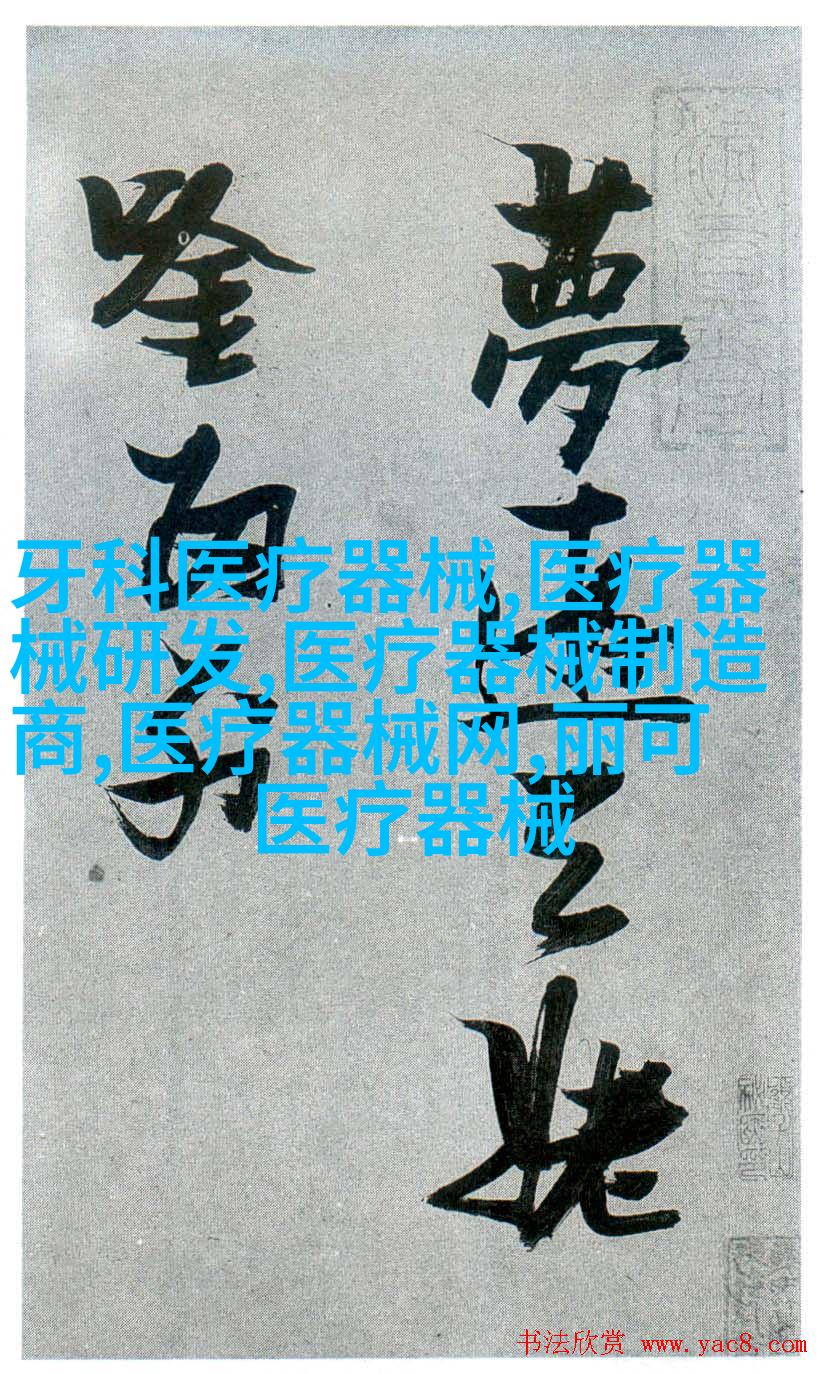 夢遊天姥
唫留别
牙科医疗器械,医疗器
械研发,医疗器械制造
商,医疗器械网,丽可
医疗器械
书法欣赏 www.yac8.com